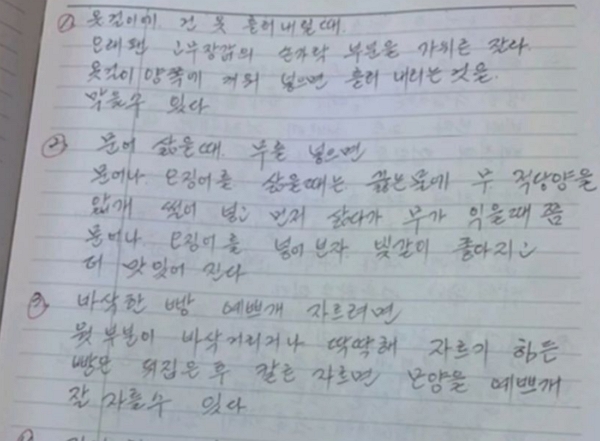 ① 옷걸이에 건 옷 흘러내릴때.
오래된 고무장갑의 손가락 부분을 가위로 잘라
옷걸이 양쪽에 끼워 넣으면 흘러 내리는 것을.
막을수 있다
② 문어 삶을때. 무를 넣으면
문어나 오징어를 삶을때는 끓는물에 무 적당양을
얇개 썰어 넣고 먼저 삶다가 무가 익을때 쯤
문어나 오징어를 넣어보자 빛갈이 좋아지고
더 맛있어 진다
③ 바삭한 빵 예쁘개 자르려면
윗부분이 바삭거리거나 딱딱해 자르기 힘든
빵은 뒤집은 후 칼로 자르면 모양을 예쁘개
잘 자를수 있다